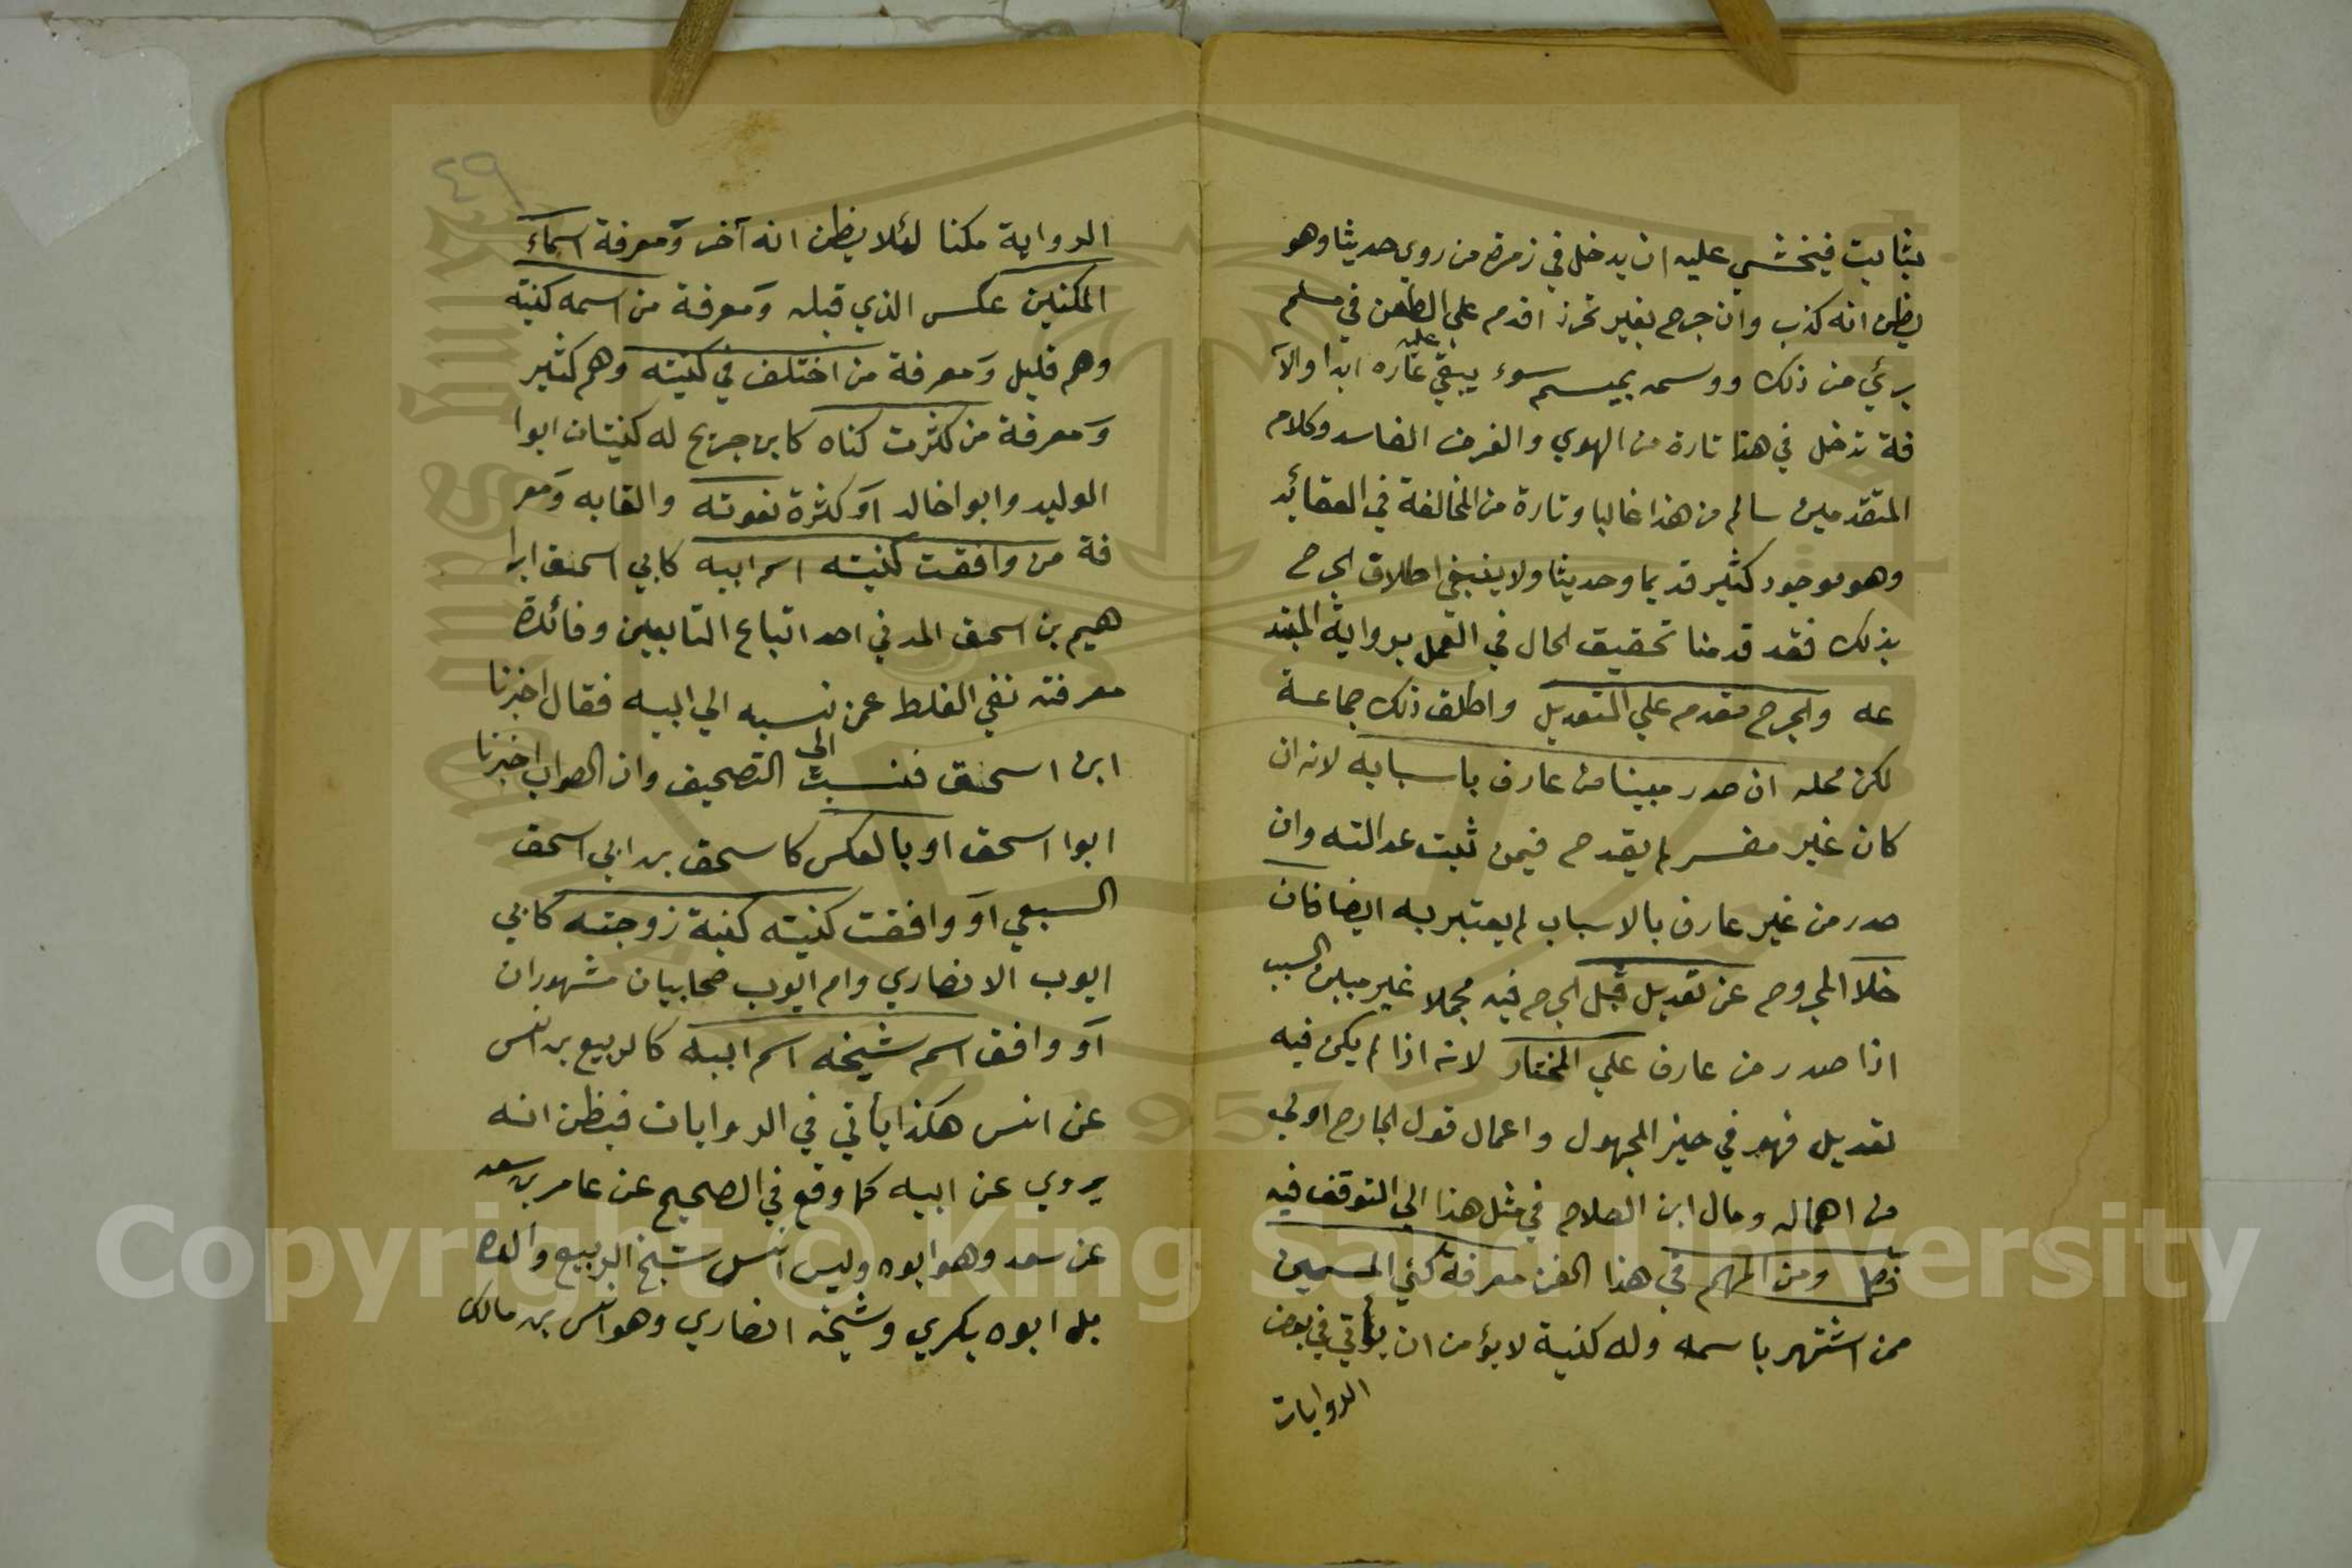 بثابت فيخشي عليه ان يدخل في زمرة من روي حديثا وهو
يظن انه كذب وان جرح بغير تحرز اقدم علي الطعن في مسلم
بريء من ذلك ووسمه بميسم سوء يبقي عليه عاره ابدا والآ
فة تدخل في هذا تارة من الهوي والغرض الفاسد وكلام
المتقدمين سالم من هذا غالبا وتارة من المخالفة في العقائد
وهو موجود كثير قديما وحديثا ولا ينبغي اطلاق الجرح
بذلك فقد قدمنا تحقيق الحال في العمل برواية المبتد
عه والجرح مقدم علي التعديل واطلق ذلك جماعة
لكن محله ان صدر مبينا من عارف باسبابه لانه ان
كان غير مفسر لم يقدح فيمن ثبت عدالته وان
صدر من غير عارف بالاسباب لم يعتبر به ايضا فان
خلا المجروح عن تعديل قبل الجرح فيه مجملا غير مبين السبب
اذا صدر من عارف علي المختار لانه اذا لم يكن فيه
تعديل فهو في حيز المجهول واعمال قول الجارح اولي
من اهماله ومال ابن الصلاح في مثل هذا الي التوقف فيه
فصل ومن المهم في هذا الفن معرفة كني المسمين
ممن اشتهر باسمه وله كنية لا يؤمن ان يأتي في بعض
الروايات
٤٩
الرواية مكنا لئلا يظن انه آخر ومعرفة اسماء
المكنين عكس الذي قبله ومعرفة من اسمه كنيته
وهم قليل ومعرفة من اختلف في كنيته وهم كثير
ومعرفة من كثرت كناه كابن جريج له كنيتان ابوا
الوليد وابوا خالد او كثرة نعوته والقابه ومعر
فة من وافقت كنيته اسم ابيه كابي اسحق ابرا
هيم بن اسحق المدني احد اتباع التابعين وفائدة
معرفته نفي الغلط عمن نسبه الي ابيه فقال اخبرنا
ابن اسحق فنسبت الي التصحيف وان الصواب اخبرنا
ابوا اسحق او بالعكس كاسحق بن ابي اسحق
السبعي او وافقت كنيته كنية زوجته كابي
ايوب الانصاري وام ايوب صحابيان مشهوران
او وافق اسم شيخه اسم ابيه كالربيع بن انس
عن انس هكذا يأتي في الروايات فيظن انه
يروي عن ابيه كما وقع في الصحيح عن عامر بن سعد
عن سعد وهو ابوه وليس انس شيخ الربيع والده
بل ابوه بكري وشيخه انصاري وهو انس بن مالك
Copyright © King Saud University